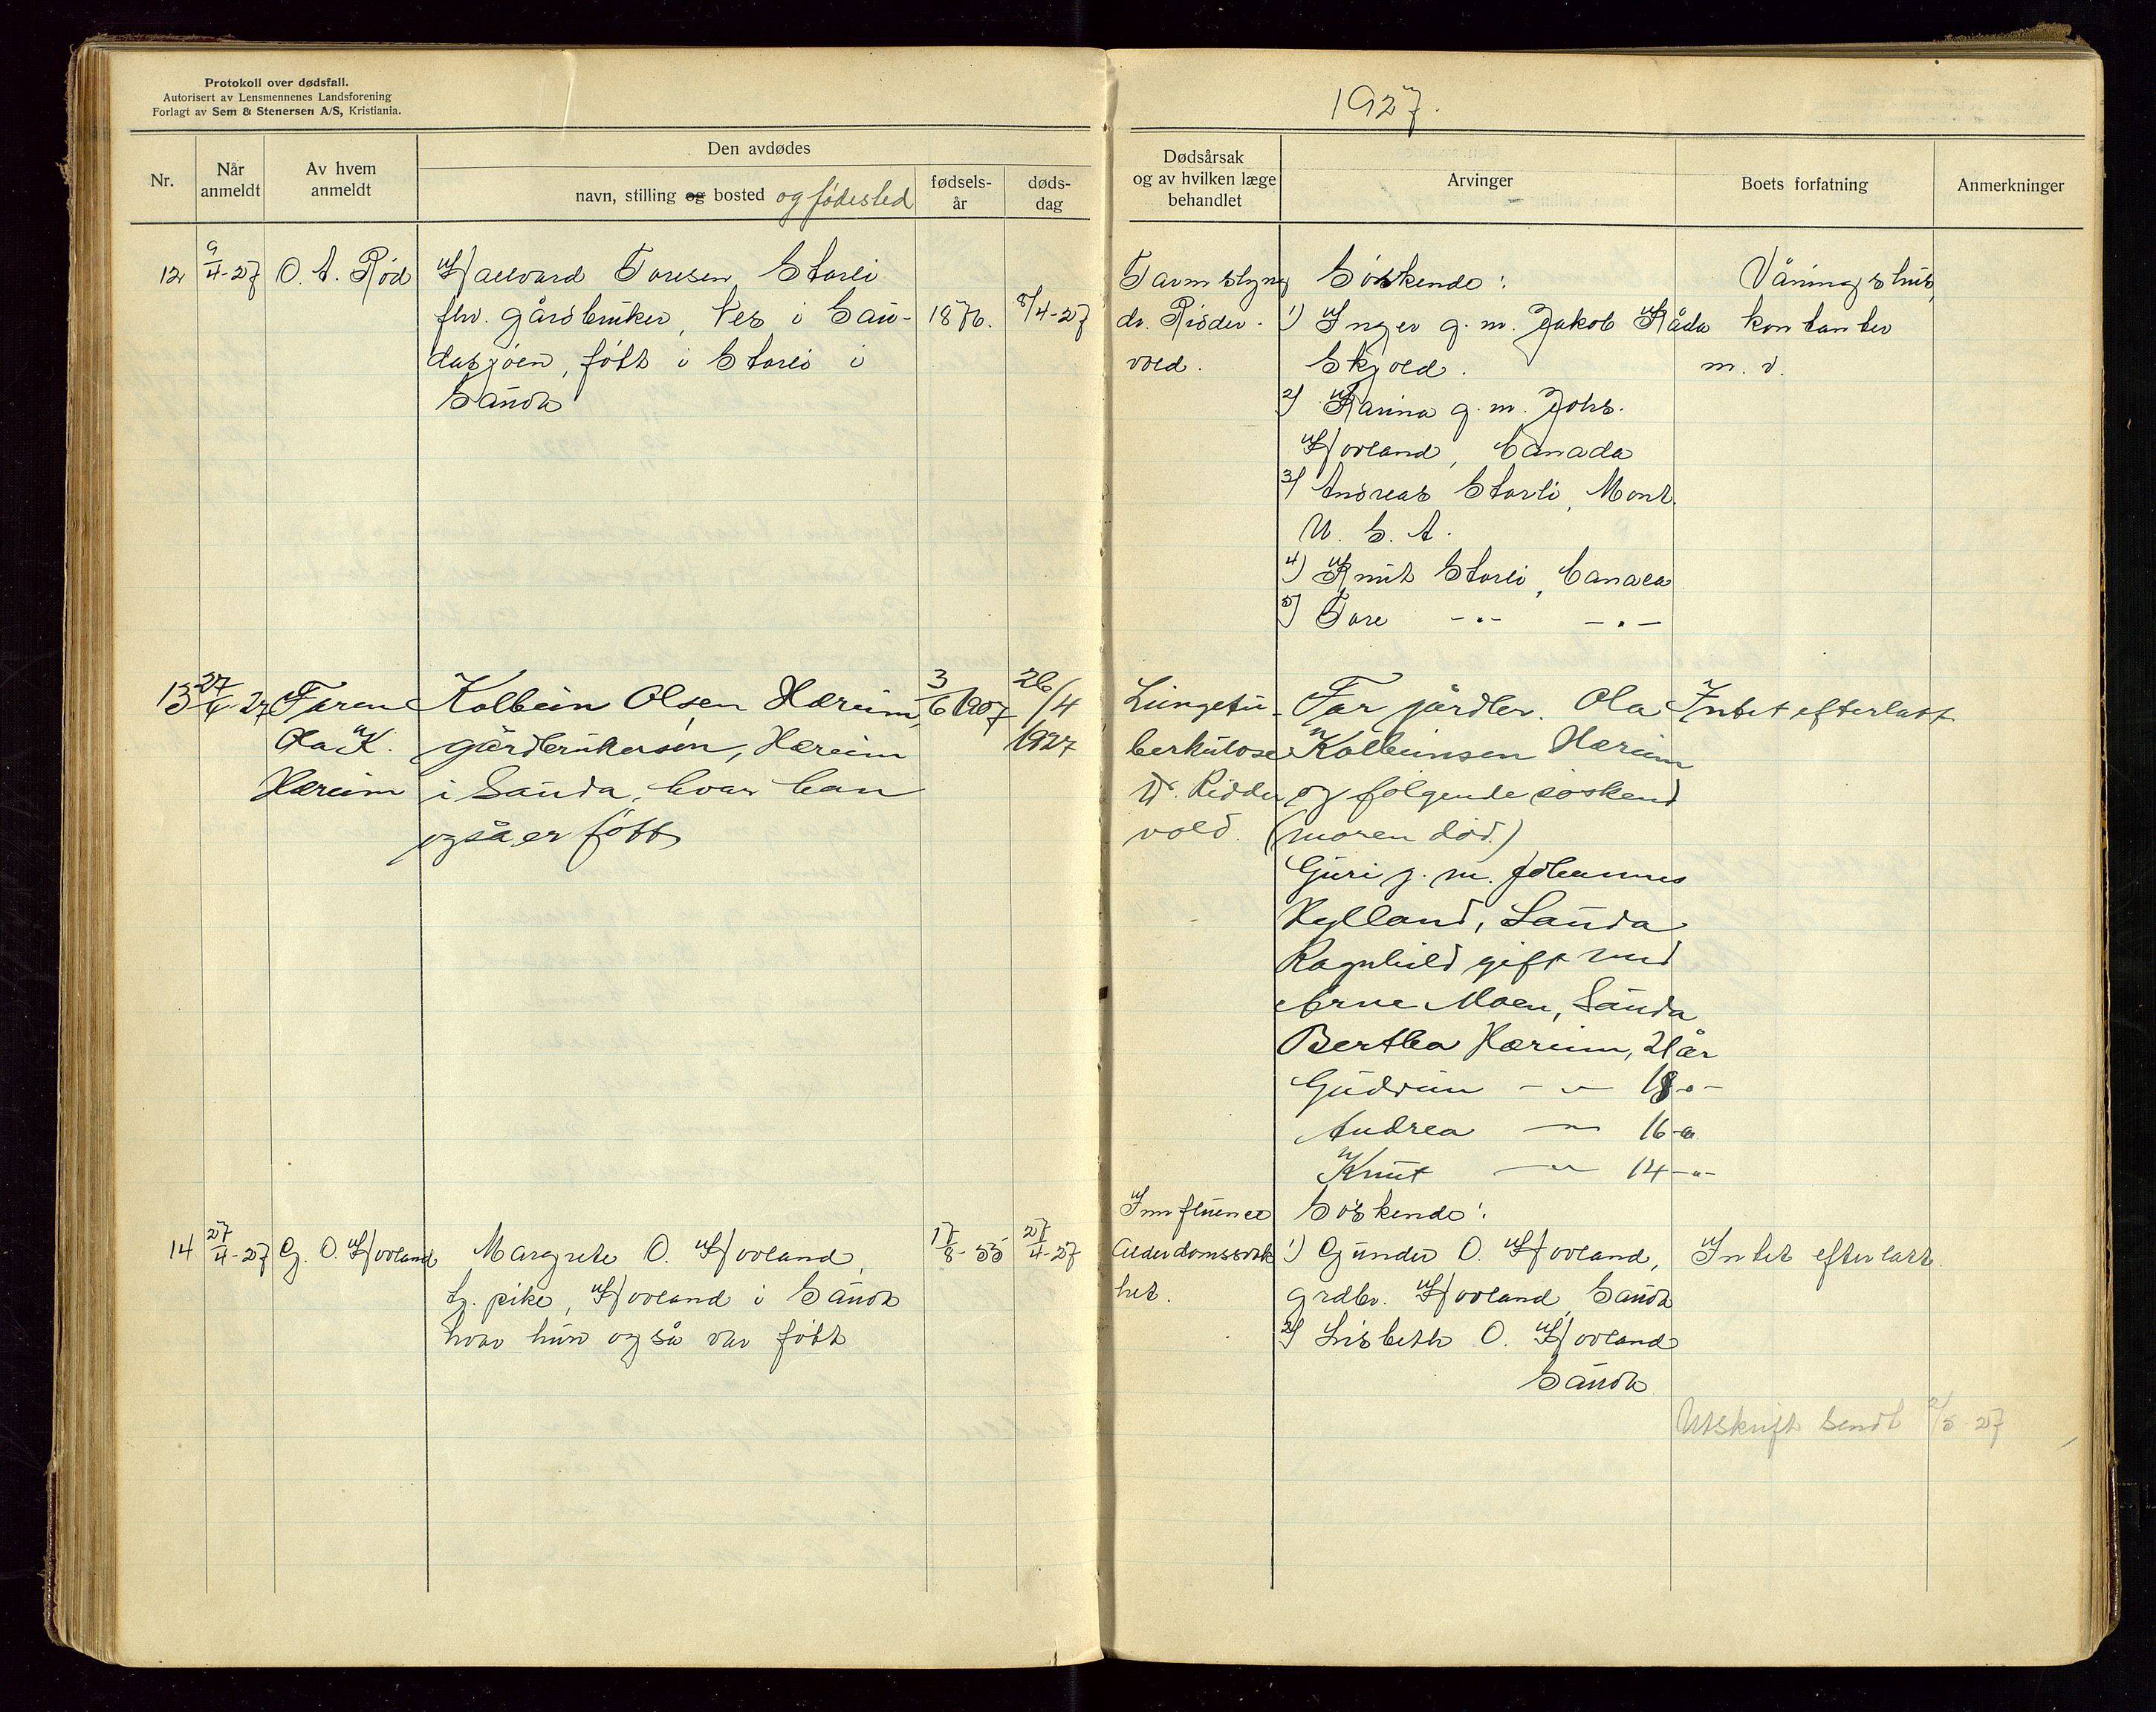 Protokoll over dødsfall.
Autorisert av Lensmennenes Landsforening
Forlagt av Sem & Stenersen A/S, Kristiania.
1927.
Nr.
Når anmeldt
Av hvem anmeldt
Den avdødes
navn, stilling og bosted og fødested
fødsels-år
døds-dag
Dødsårsak og av hvilken læge behandlet
Arvinger
Boets forfatning
Anmerkninger
12 9/4-27 O. A. Rød Hallvard Toresen Storli 1876. 8/4-27
fhv. gårdbruker, Nes i Sau-
dasjøen, født i Storli i
Sauda
Tarmslyng
dr. Ridder-
vold.
Søskende:
1) Inger g. m. Jakob Råda
Skjold.
2) Karina g. m. Johs.
Hovland, Canada
3) Andreas Storli, Mont.
U. S. A.
4) Knut Storli, Canada
5) Tore -"- -"-
Våningshus,
kontanter
m. v.
13 27/4-27 Faren Kolbein Olsen Hæreim, 3/6 1907 26/4
Ola K. gårdbrukersøn, Hæreim 1927
Hæreim i Sauda, hvor han
også er født
Lungetu-
berkulose
Dr. Ridder
vold.
Far gårdbr. Ola
Kolbeinsen Hæreim
og følgende søskend
(moren død.)
Guri g. m. Johannes
Hylland, Sauda
Ragnhild gift med
Arne Moen, Sauda
Bertha Hæreim, 21 år
Gudrun -"- 18 -"-
Andrea -"- 16 -"-
Knut -"- 14 -"-
Intet efterlatt
14 27/4-27 G. O. Hovland Margrete O. Hovland, 17/8-55 27/4-27
tj. pike, Hovland i Sauda
hvor hun også var født
Innfluence
Alderdomssvak
het.
Søskende:
1) Gunder O. Hovland,
grdbr. Hovland, Sauda
2) Lisbeth O. Hovland
Sauda
Intet efterlatt.
Utskrift sendt 2/5-27